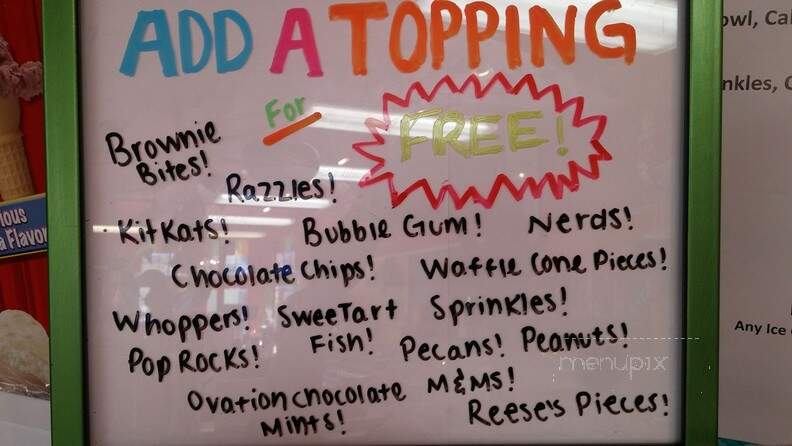 ADD A TOPPING
For
FREE!
Brownie
Bites!
Razzles!
KitKats! Bubble Gum! Nerds!
Chocolate Chips! Waffle Cone Pieces!
Whoppers! SweeTart Sprinkles!
Fish!
Pop Rocks! Pecans! Peanuts!
Ovation chocolate M&Ms!
Mints! Reese's Pieces!
menupix
owl,
nkles,
Any Ice
a Flavor